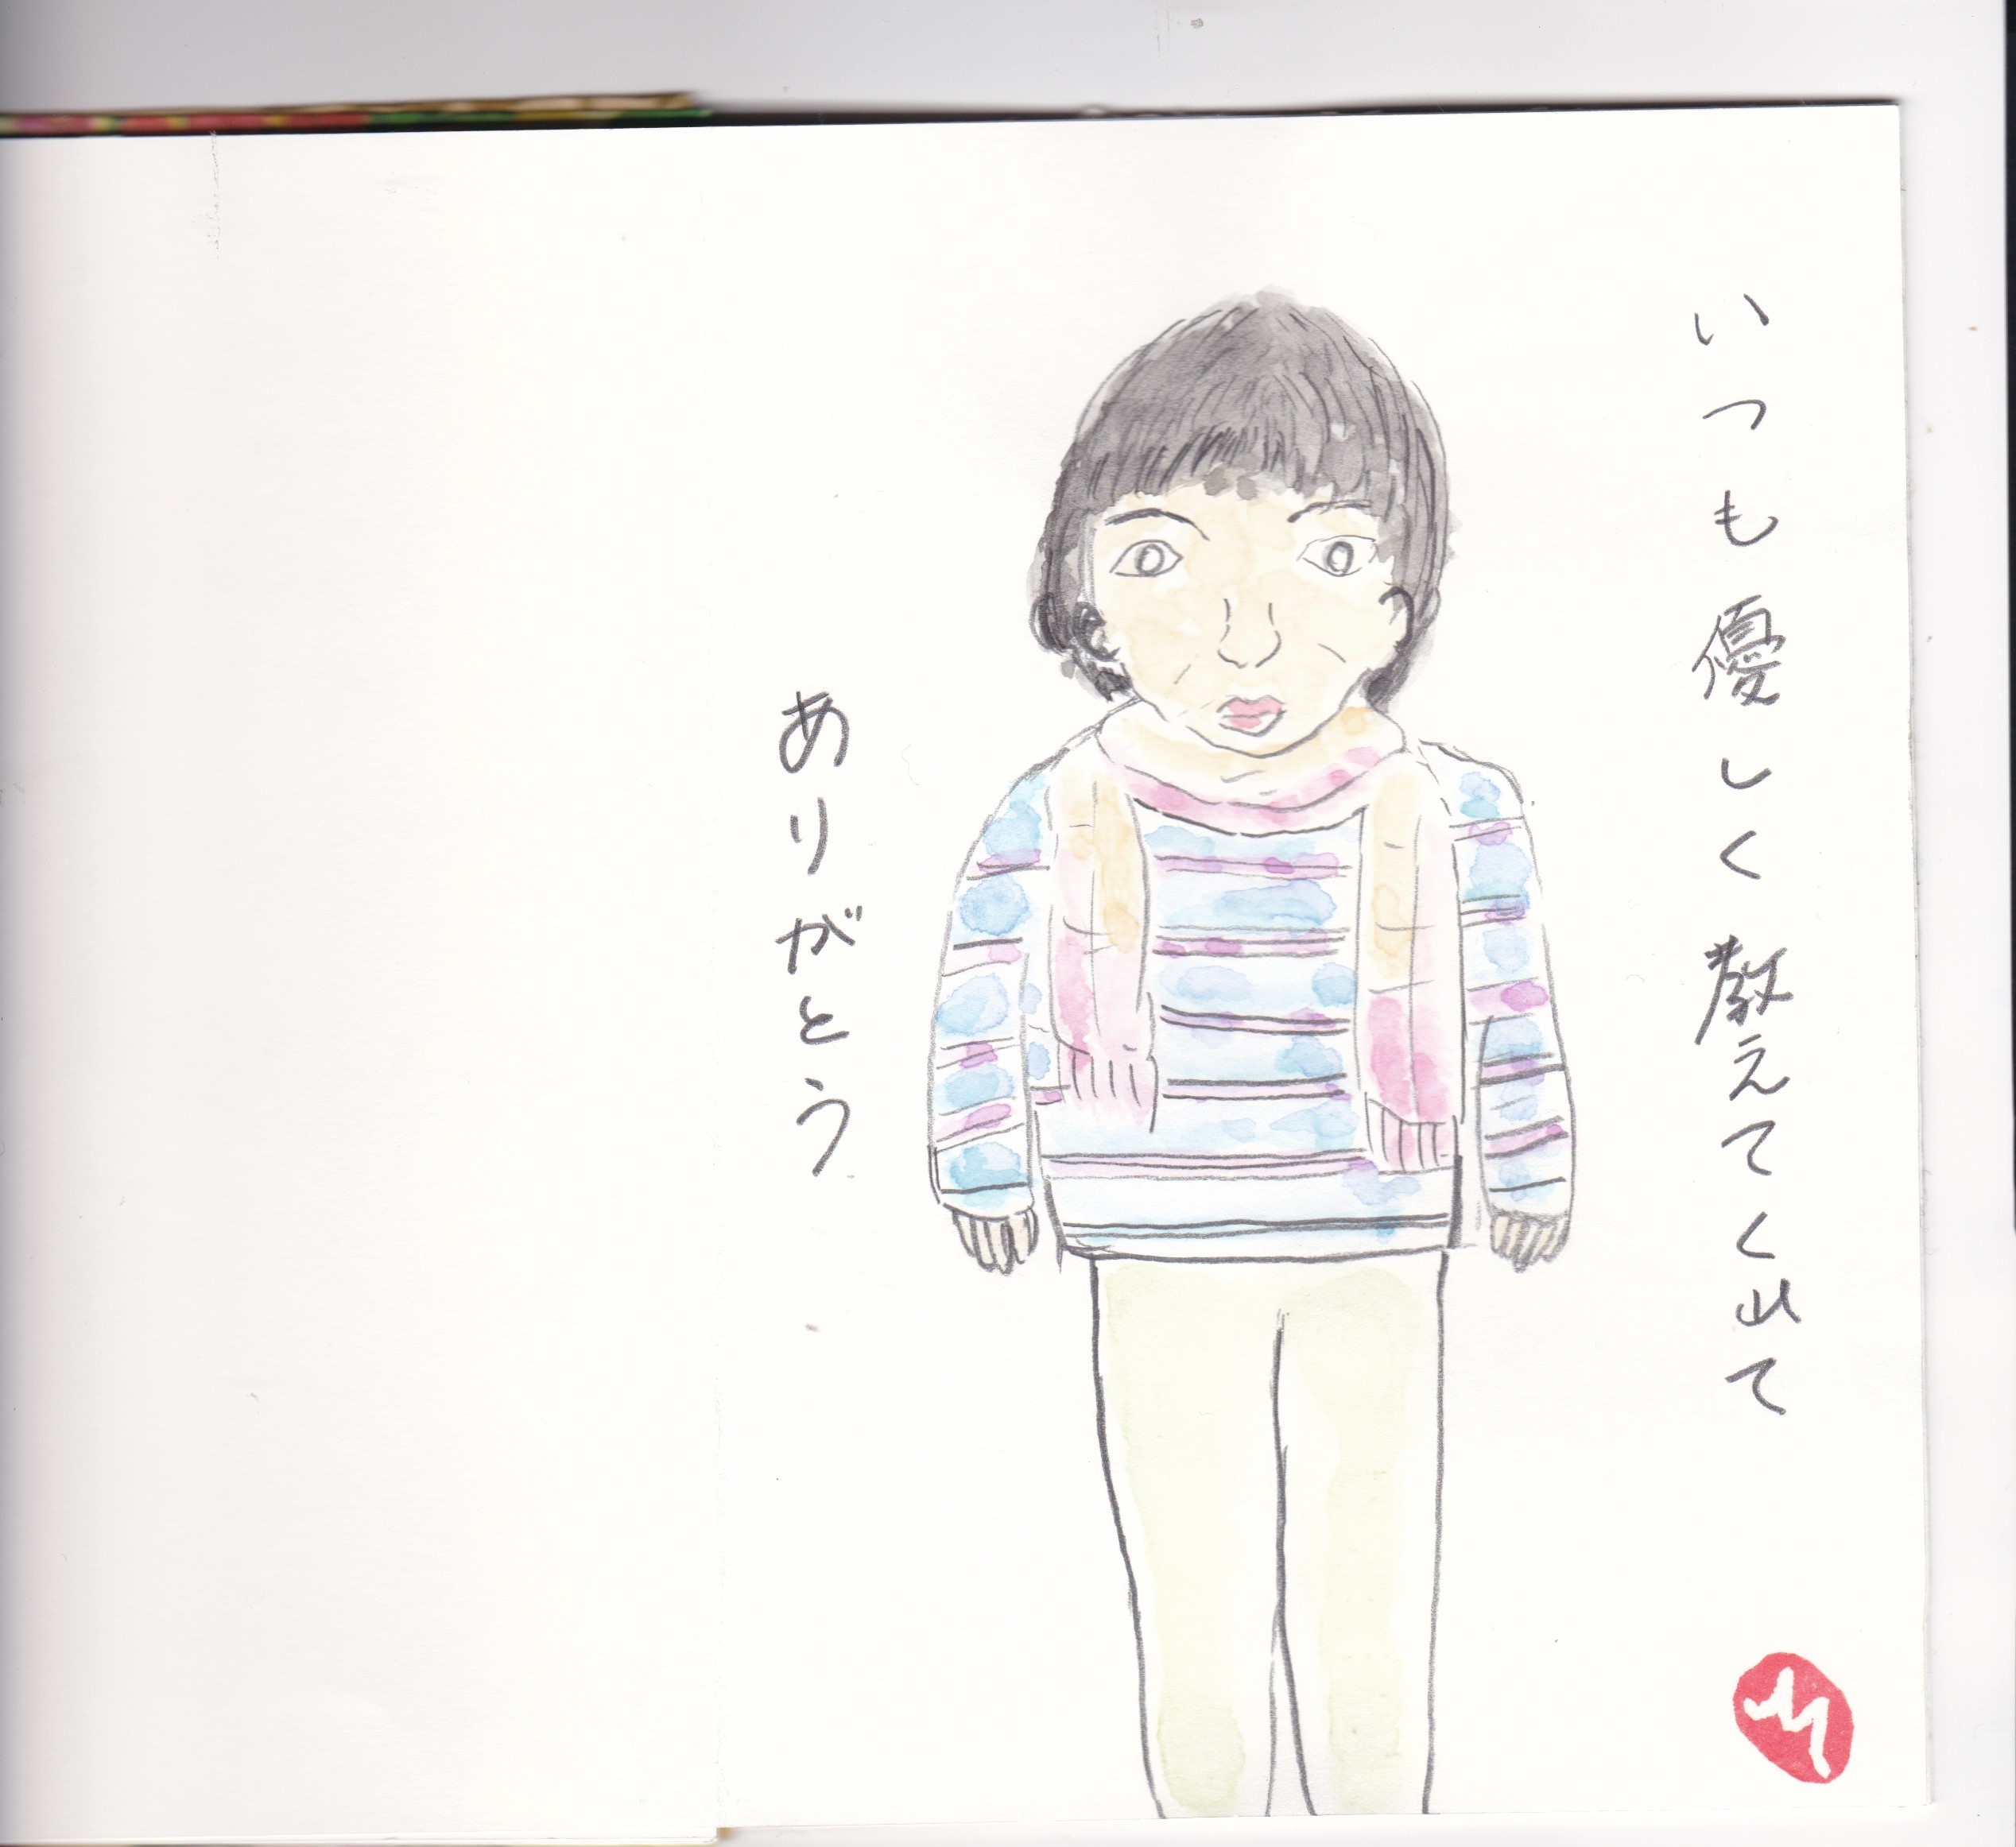 いつも優しく教えてくれて
ありがとう